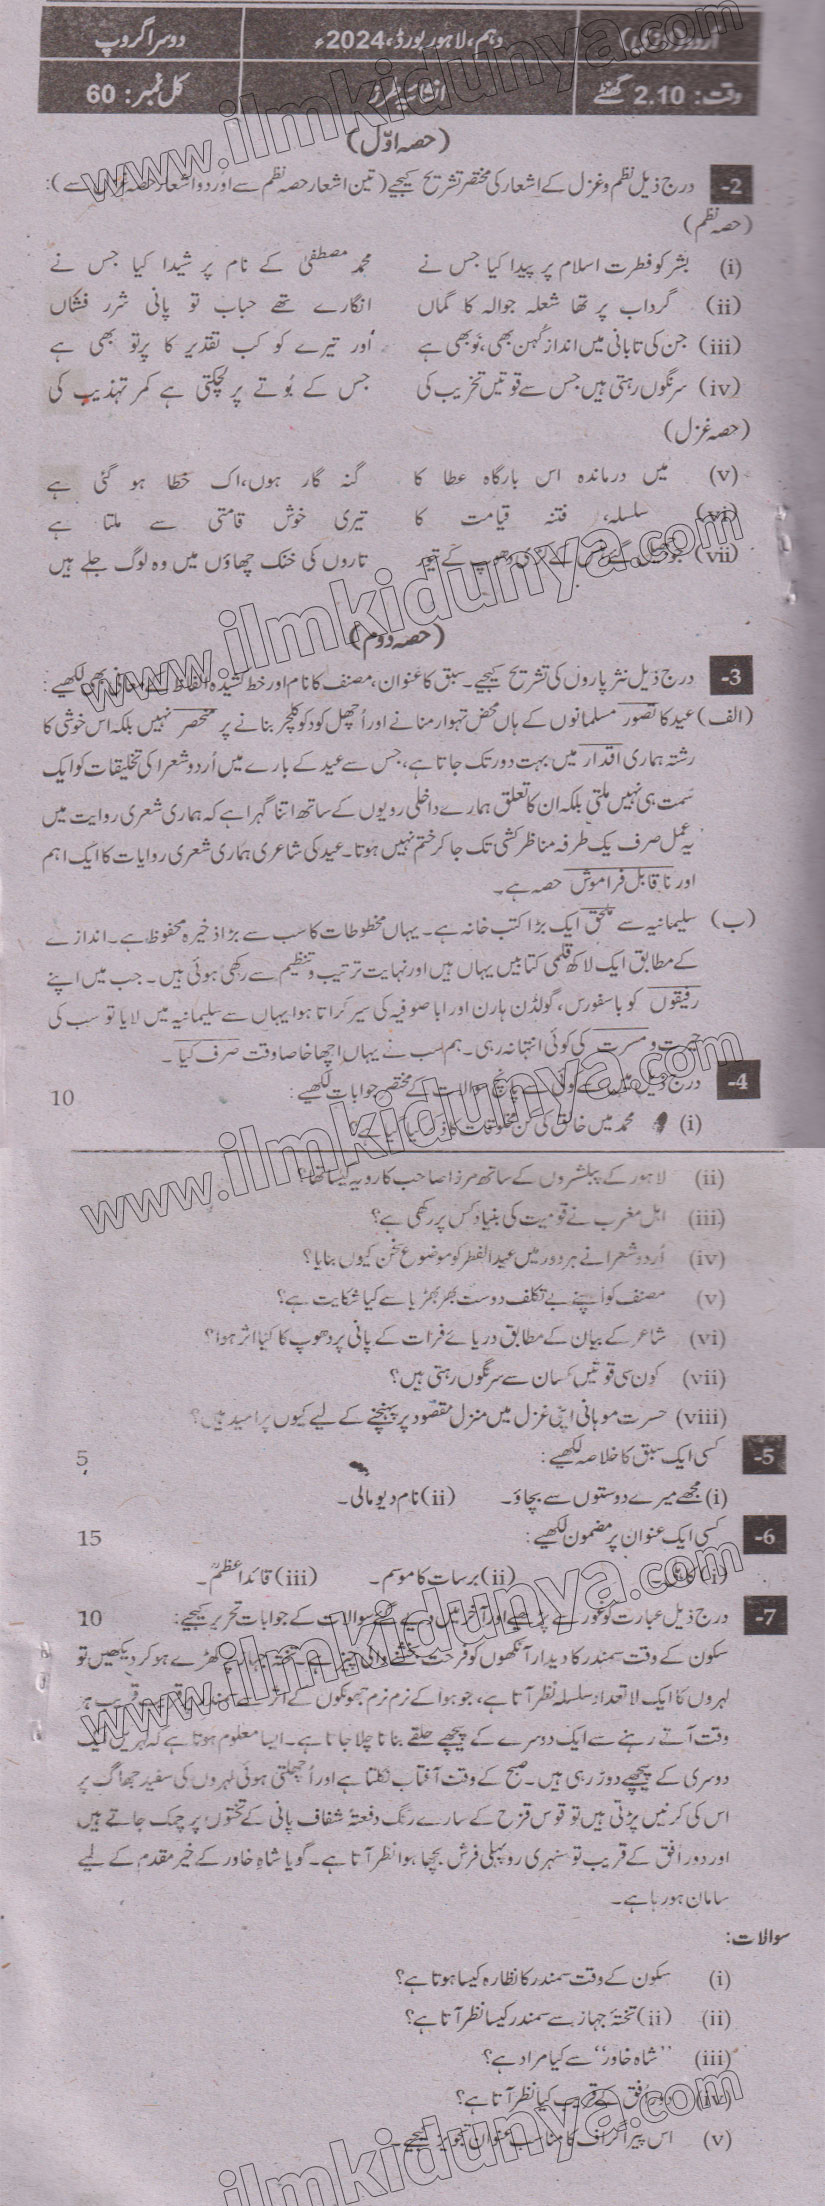 اردو (لازمی) دہم، لاہور بورڈ، 2024ء دوسرا گروپ
وقت: 2.10 گھنٹے انشائیہ طرز کل نمبر: 60
(حصہ اوّل)
2- درج ذیل نظم و غزل کے اشعار کی مختصر تشریح کیجیے (تین اشعار حصہ نظم سے اور دو اشعار حصہ غزل سے):
(حصہ نظم)
(i) بشر کو فطرت اسلام پر پیدا کیا جس نے محمد مصطفیٰ کے نام پر شیدا کیا جس نے
(ii) گرداب پر تھا شعلہ جوالہ کا گماں انگارے تھے حباب تو پانی شرر فشاں
(iii) جن کی تابانی میں انداز کُہن بھی، نَو بھی ہے اور تیرے کو کب تقدیر کا پرتو بھی ہے
(iv) سرنگوں رہتی ہیں جس سے قوتیں تخریب کی جس کے بُوتے پر لچکتی ہے کمر تہذیب کی
(حصہ غزل)
(v) میں درماندہ اس بارگاہ عطا کا گنہ گار ہوں، اک خطا ہو گئی ہے
(vi) سلسلہ، فتنہ قیامت کا تیری خوش قامتی سے ملتا ہے
(vii) جو جھیل گئے ہنس کے کڑی دھوپ کے تیور تاروں کی خنک چھاؤں میں وہ لوگ جلے ہیں
(حصہ دوم)
3- درج ذیل نثر پاروں کی تشریح کیجیے۔ سبق کا عنوان، مصنف کا نام اور خط کشیدہ الفاظ کے معانی بھی لکھیے:
(الف) عید کا تصور مسلمانوں کے ہاں محض تہوار منانے اور اُچھل کود کو کلچر بنانے پر منحصر نہیں بلکہ اس خوشی کا
رشتہ ہماری اقدار میں بہت دور تک جاتا ہے، جس سے عید کے بارے میں اُردو شعرا کی تخلیقات کو ایک
سمت ہی نہیں ملتی بلکہ ان کا تعلق ہمارے داخلی رویوں کے ساتھ اتنا گہرا ہے کہ ہماری شعری روایت میں
یہ عمل صرف یک طرفہ مناظر کشی تک جا کر ختم نہیں ہوتا۔ عید کی شاعری ہماری شعری روایات کا ایک اہم
اور ناقابل فراموش حصہ ہے۔
(ب) سلیمانیہ سے ملحق ایک بڑا کتب خانہ ہے۔ یہاں مخطوطات کا سب سے بڑا ذخیرہ محفوظ ہے۔ اندازے
کے مطابق ایک لاکھ قلمی کتابیں یہاں ہیں اور نہایت ترتیب و تنظیم سے رکھی ہوئی ہیں۔ جب میں اپنے
رفیقوں کو باسفورس، گولڈن ہارن اور ایا صوفیہ کی سیر کراتا ہوا یہاں سے سلیمانیہ میں لایا تو سب کی
حیرت و مسرت کی کوئی انتہا نہ رہی۔ ہم سب نے یہاں اچھا خاصا وقت صرف کیا۔
4- درج ذیل میں سے کوئی سے پانچ سوالات کے مختصر جوابات لکھیے: 10
(i) حمد میں خالق کی کن مخلوقات کا ذکر کیا گیا ہے؟
(ii) لاہور کے پبلشروں کے ساتھ مرزا صاحب کا رویہ کیسا تھا؟
(iii) اہل مغرب نے قومیت کی بنیاد کس پر رکھی ہے؟
(iv) اُردو شعرا نے ہر دور میں عید الفطر کو موضوع سخن کیوں بنایا؟
(v) مصنف کو اپنے بے تکلف دوست بھڑ بھڑیا سے کیا شکایت ہے؟
(vi) شاعر کے بیان کے مطابق دریائے فرات کے پانی پر دھوپ کا کیا اثر ہوا؟
(vii) کون سی قوتیں کسان سے سرنگوں رہتی ہیں؟
(viii) حسرت موہانی اپنی غزل میں منزل مقصود پر پہنچنے کے لیے کیوں پر امید ہیں؟
5- کسی ایک سبق کا خلاصہ لکھیے: 5
(i) مجھے میرے دوستوں سے بچاؤ۔ (ii) نام دیو مالی۔
6- کسی ایک عنوان پر مضمون لکھیے: 15
(i) (ii) برسات کا موسم۔ (iii) قائد اعظمؒ۔
7- درج ذیل عبارت کو غور سے پڑھیے اور آخر میں دیے گئے سوالات کے جوابات تحریر کیجیے: 10
سکون کے وقت سمندر کا دیدار آنکھوں کو فرحت بخشنے والی چیز ہے۔ تختہ جہاز پر کھڑے ہو کر دیکھیں تو
لہروں کا ایک لاتعداد سلسلہ نظر آتا ہے، جو ہوا کے نرم نرم جھونکوں کے اثر سے سمندر قریب قریب ہر
وقت آتے رہنے سے ایک دوسرے کے پیچھے حلقے بناتا چلا جاتا ہے۔ ایسا معلوم ہوتا ہے کہ لہریں ایک
دوسری کے پیچھے دوڑ رہی ہیں۔ صبح کے وقت آفتاب نکلتا ہے اور اُچھلتی ہوئی لہروں کی سفید جھاگ پر
اس کی کرنیں پڑتی ہیں تو قوس قزح کے سارے رنگ دفعتہً شفاف پانی کے تختوں پر چمک جاتے ہیں
اور دور اُفق کے قریب تو سنہری روپہلی فرش بچھا ہوا نظر آتا ہے۔ گویا شاہِ خاور کے خیر مقدم کے لیے
سامان ہو رہا ہے۔
سوالات:
(i) سکون کے وقت سمندر کا نظارہ کیسا ہوتا ہے؟
(ii) (ii) تختۂ جہاز سے سمندر کیسا نظر آتا ہے؟
(iii) "شاہ خاور" سے کیا مراد ہے؟
(iv) دور اُفق کے قریب کیا نظر آتا ہے؟
(v) اس پیراگراف کا مناسب عنوان تجویز کیجیے۔
www.ilmkidunya.com
www.ilmkidunya.com
www.ilmkidunya.com
www.ilmkidunya.com
www.ilmkidunya.com